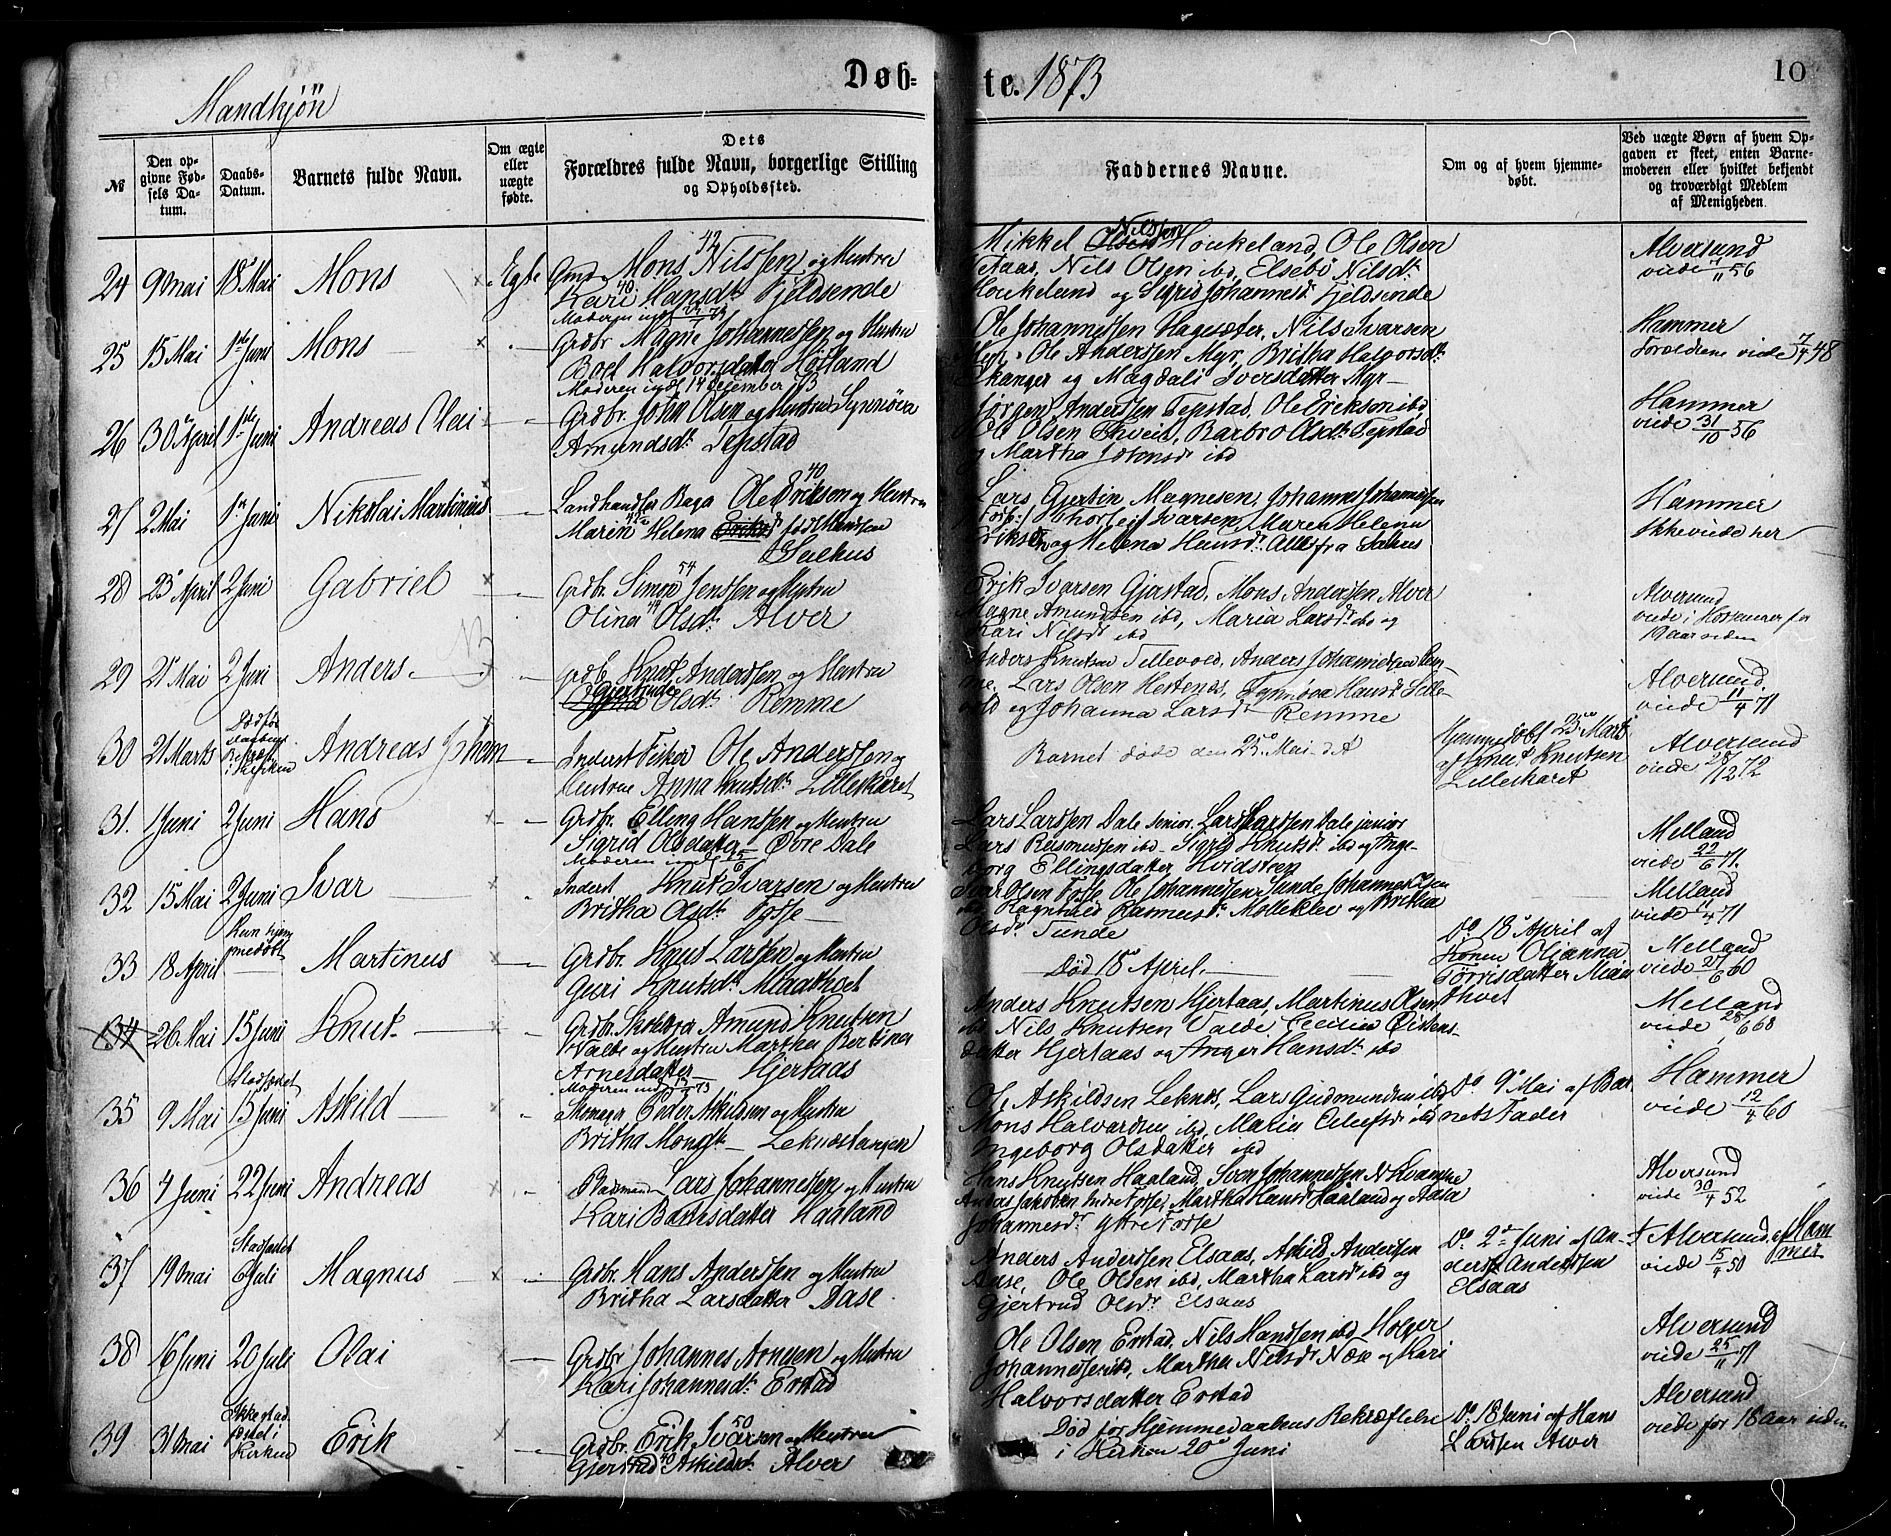 Døb=
te. 1873
10
Mandkjøn
№
Den op-
givne Fød-
sels Da-
tum.
Daabs-
Datum.
Barnets fulde Navn.
Om ægte
eller
uægte
fødte.
Dets
Forældres fulde Navn, borgerlige Stilling
og Opholdssted.
Faddernes Navne.
Om og af hvem hjemme-
døbt.
Ved uægte Børn af hvem Op-
gaven er skeet, enten Barne-
moderen eller hvilket bekjendt
og troværdigt Medlem
af Menigheden.
24 9 Mai 18 Mai Mons Egte
Gmd. Mons 42 Nilssen og Hustru
Kari 40 Hansdt. Fjeldsende
Mikkel Nilssen Houkeland, Ole Olsen
Nils Olsen ibd, Elsebø Nilsdt.
Houkeland og Sigrid Johannesd. Fjeldsende
Alversund
viede 56
25 15 Mai 1ste Juni Mons
Grdbr. Magne Johannessen og Hustru
Boel Halvorsdatter Høiland
Ole Johannessen Hagesæter, Nils Ivarsen
Ole Anderssen Myr, Britha Halvorsdt.
Skanger og Magdali Iversdatter Myr
Hammer
Forældrene viede 7/4 48
26 30 April 1ste Juni Andreas Olai
Moderen 14 Desember 73
Grdbr. John Olsen og Hustru Synnøva
Amundsdt. Tepstad
Jørgen Anderssen Tepstad, Ole Eriksen ibd
Ole Olsen Thveit, Barbro Olsdt. Tepstad
og Martha ibd
Hammer
viede 31/10 56
27 2 Mai 1ste Juni Nikolai Martinius
Landhandler Baga Ole 40 Eriksen og Hustru
Maren Helena født Hansen
Seilhus
Lars Gjertin Magnesen, Johannes Johannessen
Thorleif Ivarsen, Maren Helena
og Helena Hansd. Alle fra
Hammer
Ikke viede her
28 23 April 2 Juni Gabriel
Grdbr. Simon 54 Jenssen og Hustru
Olina Olsdt. Alver
Erik Ivarsen Gjerstad, Mons Anderssen Alver
Magne Amundsen ibd, Maria Larsd. ibd og
Kari Nilsdt. ibd
Alversund
viede i Hosanger for
19 aar siden
29 21 Mai 2 Juni Anders
Grdbr. Knut Anderssen og Hustru
Gjertrude Olsdt. Remme
Anders Knutsen Tellevold, Anders Johannessen Rem-
me, Lars Olsen Hestenes, Synnøva Hansd. Telle-
vold og Johanna Larsdt. Remme
Alversund.
viede 11/4 71
30 21 Marts Andreas Johan
Inderst Fisker Ole Anderssen og
Hustrue Anna Knutsdt. Lilleskaret
Barnet døde den 25 Mai d. A
Hjemmedøbt 25 Marts
af Knutsen
Lilleskaret
Alversund
viede 28/12 72
31. 1 Juni 2 Juni Hans
Grdbr. Elling Hanssen og Hustru
Sigrid Olsdatter Øvre Dale
Lars Larssen Dale senior, Lars Larssen Dale junior
Lars Rasmussen ibd Sigrid Knutsd. ibd og Inge-
borg Ellingsdatter Hvidsteen
Melland
viede 22/6 71.
32 15 Mai 2 Juni Ivar
Inderst Knut Ivarsen og Hustru
Britha Olsdt. Fosse
Ivar Olsen Fosse Ole Johannessen Tunde Johannes Olsen
ibd Ragnhild Rasmusd. Mølleklev og Britha
Olsd. Tunde
Melland
viede 11/4 71
33 18 April Kun hjem
medøbt Martinus
Grdbr. Knut Larssen og Hustru
Guri Knutsdt. Maathoet
Død 18 April.
Do 18 April af
Konen Olianna
Tørrisdatter
Melland
viede 27/6 60
34 26. Mai 15 Juni Knut
Grdbr. Skoleh. Amund Knutsen
Valde og Hustru Martha Bertina
Arnesdatter Hjertaas
Anders Knutsen Hjertaas, Martinus Olsen
ibd Nils Knutsen Valde, Cecilia Øistens-
datter Hjertaas og Anger Hansdt. ibd
Melland
viede 28/6 68
35 9 Mai Stadfæstet
15 Juni Askild
Skomager Peder Askildsen og Hustru
Britha Monsdt. Leknæstangen
Ole Askildsen Leknes, Lars Gudmundsen ibd
Mons Halvardsen ibd, Maria ibd
Ingeborg Olsdatter ibd
Do. 9 Mai af Bar
nets Fader
Hammer
viede 12/4 60
36 4 Juni 22 Juni Andreas
Lars Johannessen og Hustru
Kari Baarsdatter Haaland
Hans Knutsen Haaland, Sven Johannessen
Andas Jakobsen Indre Fosse, Martha Hansd. Haaland og Aasa
Johannesd. Yttre Fosse
Alversund
viede 30/4 52
37 19 Mai Stadfæstet
6 Juli Magnus
Grdbr. Hans Anderssen og Hustru
Britha Larsdatter Aase
Anders Anderssen Elsaas, Askild Anderssen
Aase, Ole Olsen ibd, Martha Larsd. ibd og
Gjertrud Olsdt. Elsaas
Do. 2 Juni af An-
ders Anderssen
Elsaas
Alversund, af Ham
mer
viede 15/4 50
38 16 Juni 20 Juli Olai
Grdbr. Johannes Arnesen og Hustru
Kari Johannesdt. Erstad
Ole Olsen Erstad, Nils Hanssen ibd, Holger
Johannessen ibd, Martha Nilsdt. Næse og Kari
Halvorsdatter Erstad
Alversund
viede 25/11 71
39 31 Mai Ikke stad
fæstet i
Kirken Erik
Grdbr. Erik 50 Ivarsen og Hustru
Gjerstad 40 Askildsdt. Alver
Død før Hjemmedaabens Bekræftelse
i Kirken 20 Juni
Do. 18 Juni af Hans
Larssen Alver
Alversund
viede for 18 Aar siden